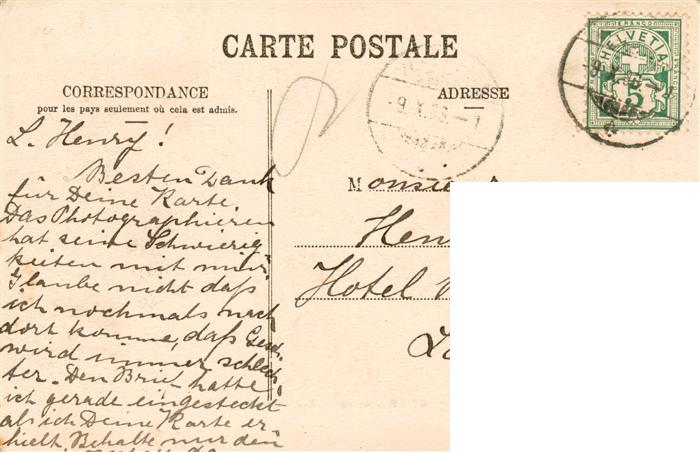 CARTE POSTALE
CORRESPONDANCE
pour les pays seulement où cela est admis.
L. Henry!
Besten Dank
für Deine Karte.
Das Photographieren
hat seine Schwierig
keiten mit mir.
Glaube nicht daß
ich nochmals nach
dort komme, daß Gesch.
wird immer schlech-
ter. Den Brief hatte
ich gerade eingesteckt
als ich Deine Karte er-
hielt. Behalte nur den
ADRESSE
-9.X.06.-1
Monsie
Hen
Hotel
FRANCO
HELVETIA
5
-9.X.